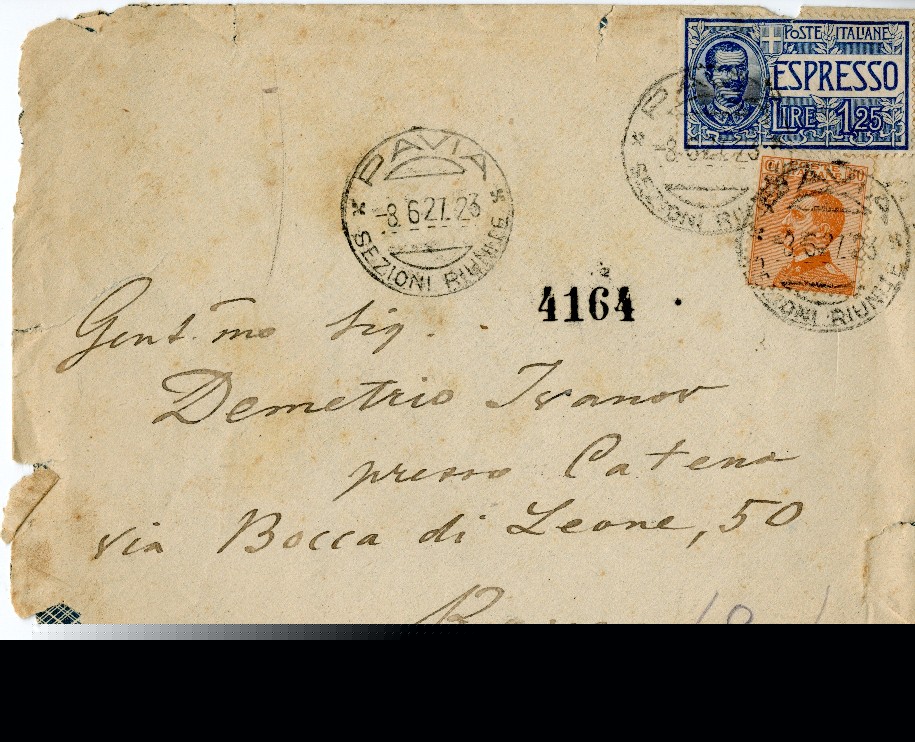 POSTE ITALIANE
ESPRESSO
LIRE 1,25
PAVIA
-8.6.27.23
SEZIONI RIUNITE
PAVIA
-8.6.27.23
SEZIONI RIUNITE
-8.6.27.23
SEZIONI RIUNITE
4164
Gent.mo Sig.
Demetrio Ivanov
presso Catena
Via Bocca di Leone, 50